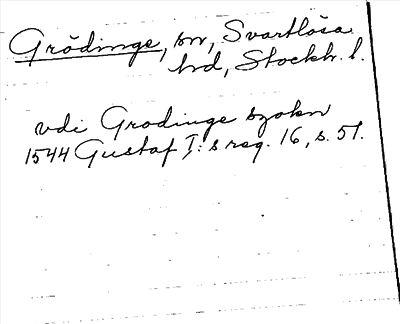 Grödinge, sn, Svartlösa
hd, Stockh. l.
vdi Grodinge szokn
1544 Gustaf I:s reg. 16, s. 51.